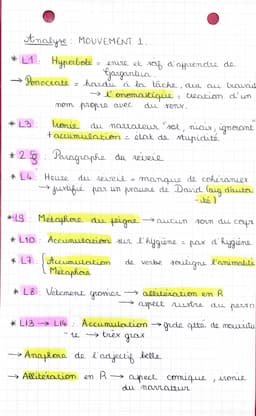 Analyse : MOUVEMENT 1.
* L1 : Hyperbole = envie et soif d'apprendre de
Gargantua.
→ Ponocrate = hardu à la tâche, dur au travail
→ L'onomastique : création d'un
nom propre avec du sens.
* L3 : Ironie du narrateur "sot, niais, ignorant"
+ accumulation = état de stupidité
* 2 § : Paragraphe du réveil
* L4 Heure du réveil = manque de cohérence
→ justifié par un psaume de David (arg d'autor
-ité)
* L9 Métaphore du peigne → aucun soin du corps
* L10 : Accumulation sur l'hygiène = pas d'hygiène
* L7 : Accumulation de verbe souligne l'animalité
Métaphore
* L8 : Vêtement grossier → allitération en R
→ aspect rustre du perso
* L13 → L14 : Accumulation → gde qtté de nourritu
-re → très gras
→ Anaphore de l'adjectif belle
→ Allitération en R → aspect comique, ironie
du narrateur